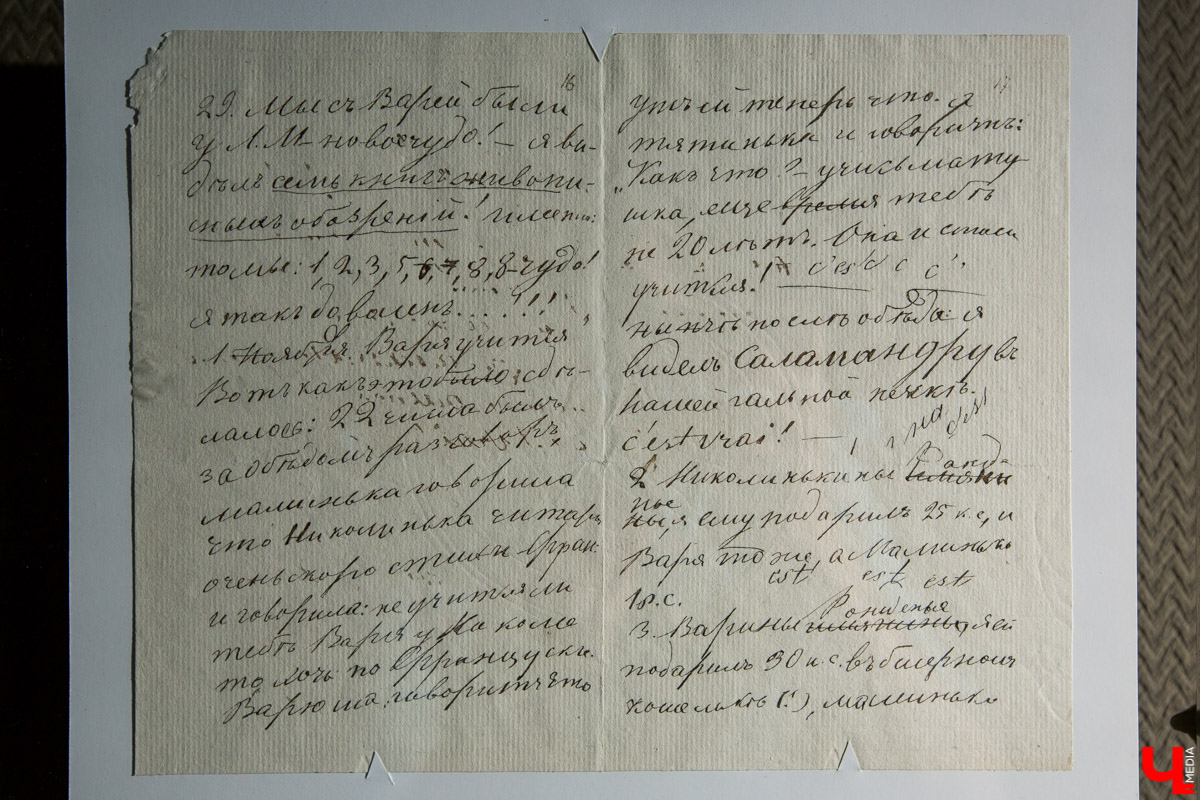 16
29. Мы съ Варей были
у Л.М. новое чудо! – я ви-
дѣлъ семь книгъ живопи-
сныхъ обозреній! именно:
томы: 1, 2, 3, 5, 6, 7, 8, 8 – чудо!
я такъ доволенъ......!!!
1 Ноября. Варя учится
Вотъ какъ это было сдѣ-
лалось: 22 числа былъ
за обѣдомъ разговоръ
маминька говорила
что Николинька читаетъ
очень скоро стихи Фран:
и говорила: не учитъ ли
тебѣ Варя у Ка коля
то хочь по Французски.
Варюша, говоритъ что
17
ужъ ей теперь что. а
тятинька и говоритъ:
"Какъ что? – учись мату
шка, еще время тебѣ
не 20 лѣтъ. Она и стала
учиться! c'est c c'.
нынчѣ послѣ обѣда: я
виделъ Саламандру въ
нашей гальной печкѣ.
c'est vrai! –
c'est
2 Николинькины Рожд-
ные
ны, я ему подарилъ 25 к. с., и
Варя тоже, а Маминька
est est est
1 р. с.
Рожденья
3. Варины имянины, я ей
подарилъ 30 к. с. въ бисерномъ
кошелькѣ (!), маминька
Ч MEDIA